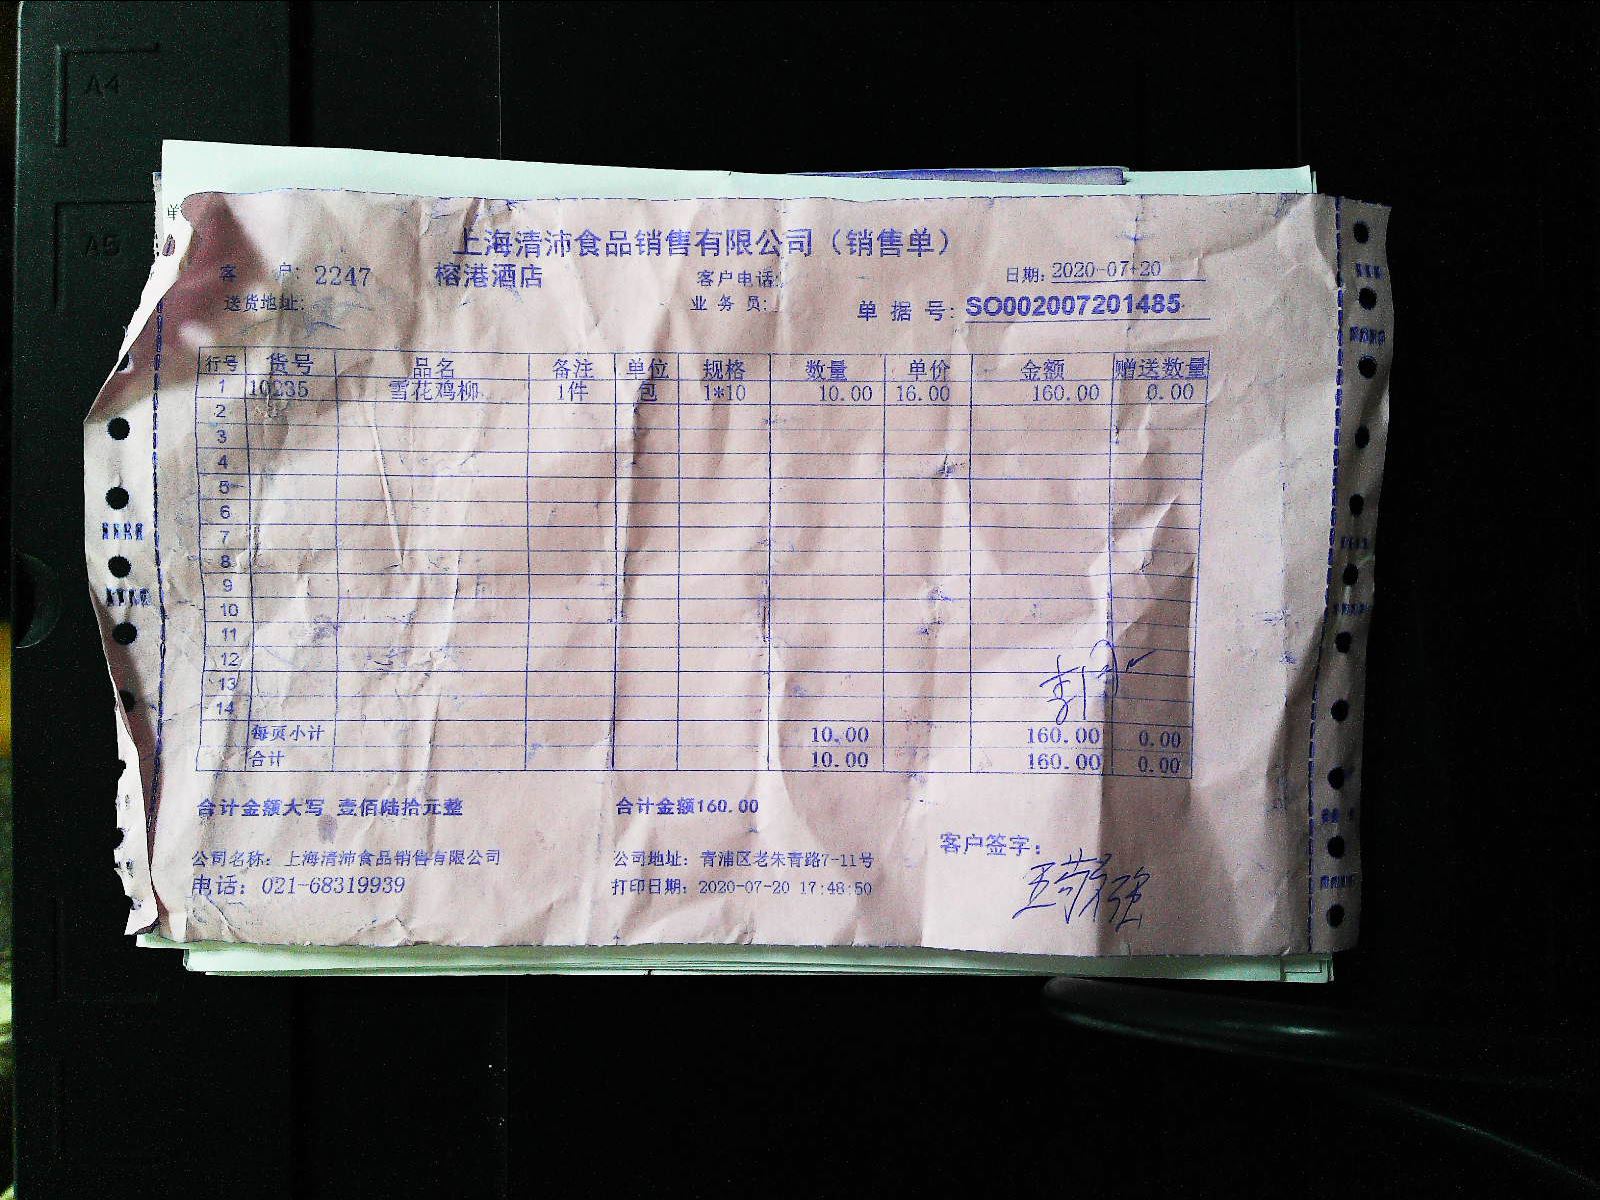 A4
A5
单
上海清沛食品销售有限公司（销售单）
客 户: 2247 榕港酒店 客户电话: 日期: 2020-07-20
送货地址: 业 务 员: 单 据 号: SO002007201485
行号 货号 品名 备注 单位 规格 数量 单价 金额 赠送数量
1 10235 雪花鸡柳 1件 包 1*10 10.00 16.00 160.00 0.00
2
3
4
5
6
7
8
9
10
11
12
13
14
每页小计 10.00 160.00 0.00
合计 10.00 160.00 0.00
合计金额大写 壹佰陆拾元整 合计金额160.00
公司名称: 上海清沛食品销售有限公司 公司地址: 青浦区老朱青路7-11号 客户签字:
电话: 021-68319939 打印日期: 2020-07-20 17:48:50